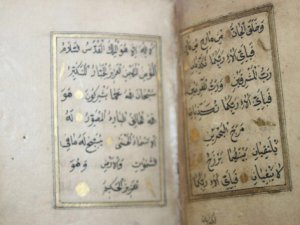 وخلق الجان من مارج من
فبأي آلاء ربكما
رب المشرقين ورب
فبأي آلاء ربكما
مرج البحرين
يلتقيان بينهما برزخ
لا يبغيان فبأي آلاء ربكما
لا إله إلا هو الملك القدوس السلام
المؤمن المهيمن العزيز الجبار المتكبر
سبحان الله عما يشركون هو
الله الخالق البارئ المصور له
الأسماء الحسنى يسبح له ما في
السموات والأرض وهو
العزيز الحكيم